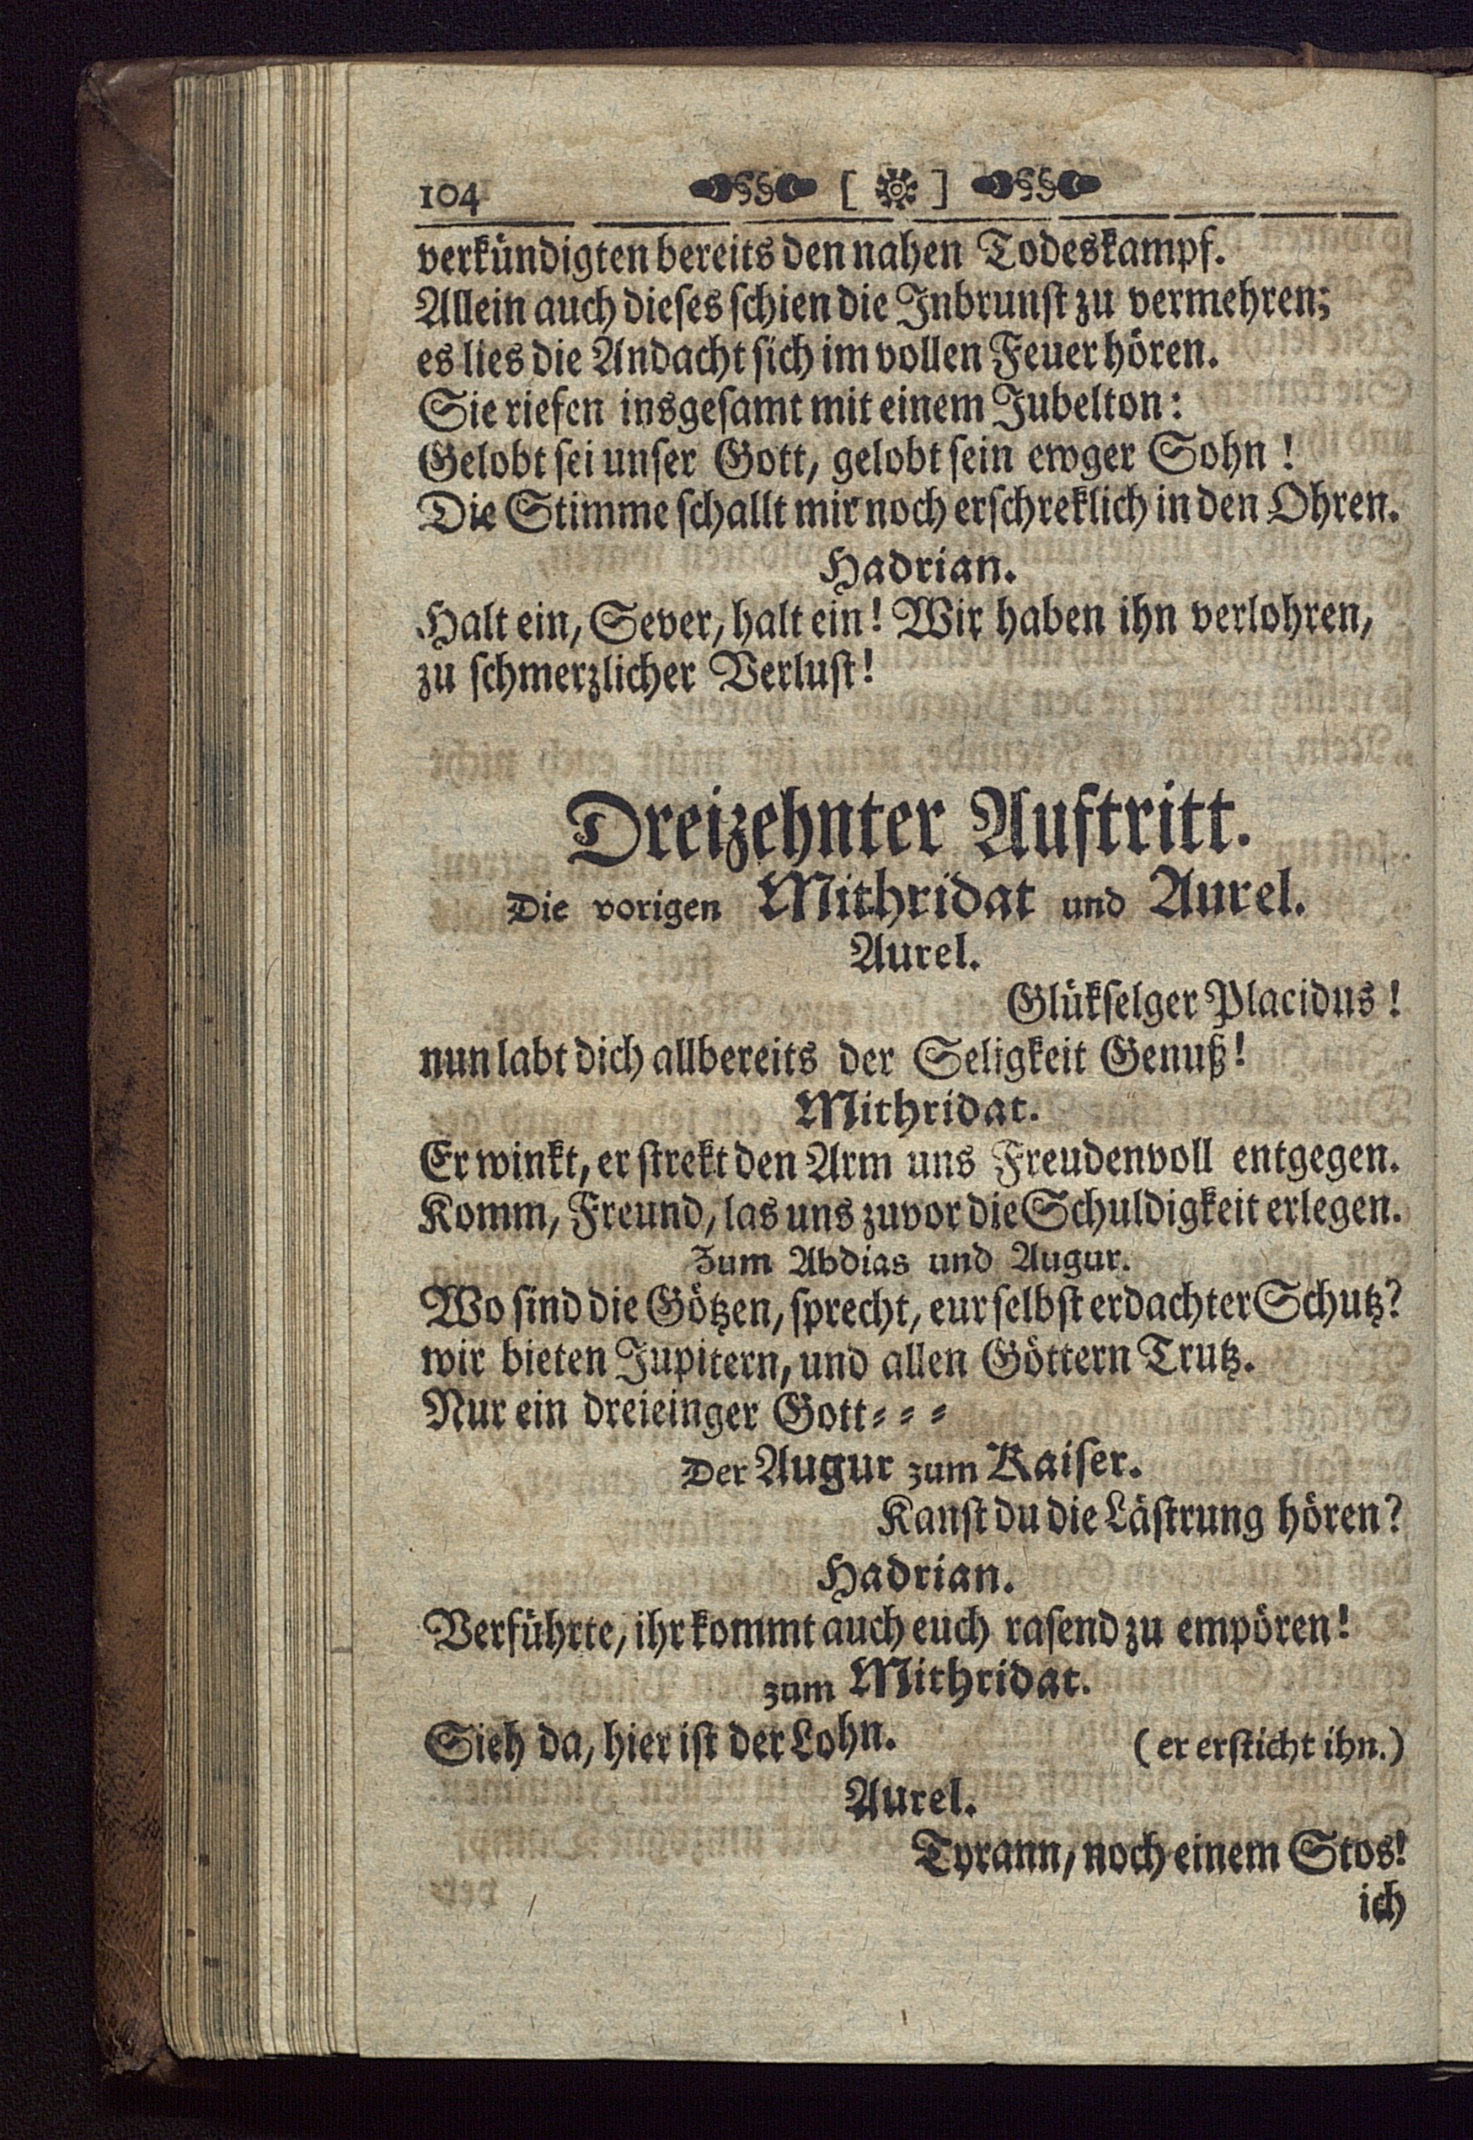 104 §§ [ ] §§
verkündigten bereits den nahen Todeskampf.
Allein auch dieses schien die Inbrunst zu vermehren;
es lies die Andacht sich im vollen Feuer hören.
Sie riefen insgesamt mit einem Jubelton:
Gelobt sei unser Gott, gelobt sein ewger Sohn!
Die Stimme schallt mir noch erschreklich in den Ohren.
Hadrian.
Halt ein, Sever, halt ein! Wir haben ihn verlohren,
zu schmerzlicher Verlust!
Dreizehnter Auftritt.
Die vorigen Mithridat und Aurel.
Aurel.
Glükselger Placidus!
nun labt dich allbereits der Seligkeit Genuß!
Mithridat.
Er winkt, er strekt den Arm uns Freudenvoll entgegen.
Komm, Freund, las uns zuvor die Schuldigkeit erlegen.
Zum Abdias und Augur.
Wo sind die Götzen, sprecht, eur selbst erdachter Schutz?
wir bieten Jupitern, und allen Göttern Trutz.
Nur ein dreieinger Gott⸗ ⸗ ⸗
Der Augur zum Kaiser.
Kanst du die Lästrung hören?
Hadrian.
Verführte, ihr kommt auch euch rasend zu empören!
zum Mithridat.
Sieh da, hier ist der Lohn. (er ersticht ihn.)
Aurel.
Tyrann, noch einem Stos!
ich